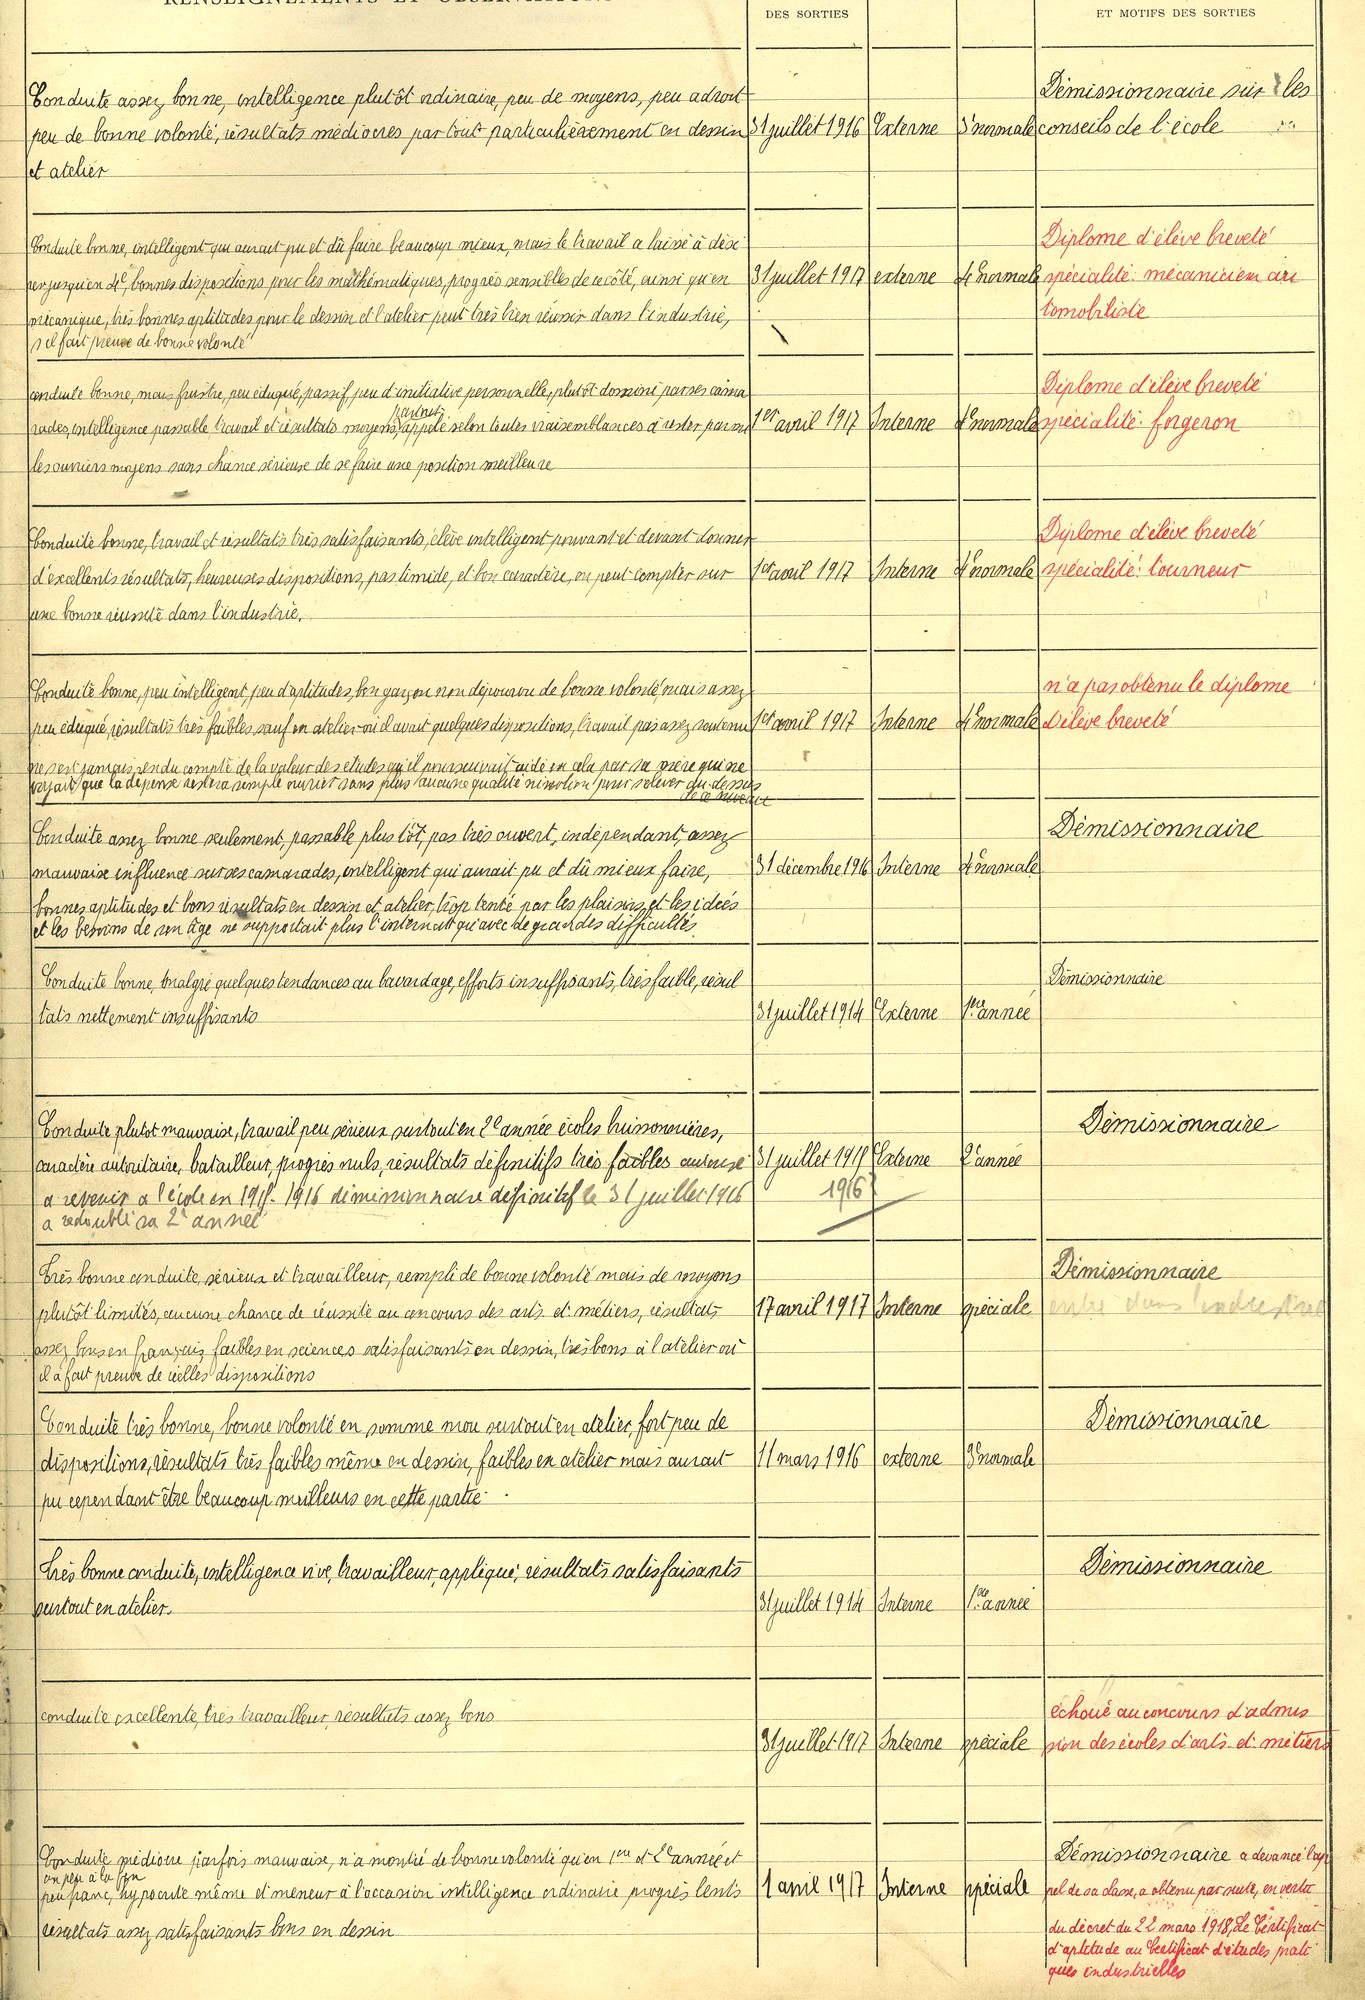 RENSEIGNEMENTS ET OBSERVATIONS
DES SORTIES
ET MOTIFS DES SORTIES
Conduite assez bonne, intelligence plutôt ordinaire, peu de moyens, peu adroit
peu de bonne volonté, résultats médiocres partout particulièrement en dessin
et atelier
31 juillet 1916
Externe
3e normale
Démissionnaire sur les
conseils de l'école
Conduite bonne, intelligent qui aurait pu et dû faire beaucoup mieux, mais le travail a laissé à dési
rer jusqu'en 4e, bonnes dispositions pour les mathématiques, progrès sensibles de ce côté, ainsi qu'en
mécanique, très bonnes aptitudes pour le dessin et l'atelier peut très bien réussir dans l'industrie,
s'il fait preuve de bonne volonté
31 juillet 1917
externe
4e normale
Diplome d'élève breveté
spécialité: mécanicien au
tomobiliste
conduite bonne, mais frustre, peu éduqué, passif, peu d'initiative personnelle, plutôt dominé par ses cama
rades, intelligence passable travail et résultats moyens, appelé selon toutes vraisemblances à rester parmi
les ouvriers moyens sans chance sérieuse de se faire une position meilleure
1er avril 1917
Interne
4e normale
Diplome d'élève breveté
spécialité: forgeron
Conduite bonne, travail et résultats très satisfaisants, élève intelligent pouvant et devant donner
d'excellents résultats, heureuses dispositions, pas timide, et bon caractère, on peut compter sur
une bonne réussite dans l'industrie.
1er avril 1917
Interne
4e normale
Diplome d'élève breveté
spécialité: tourneur
Conduite bonne, peu intelligent, peu d'aptitudes, bon garçon non dépourvu de bonne volonté, mais assez
peu éduqué, résultats très faibles, sauf en atelier où il avait quelques dispositions, travail pas assez soutenu
ne s'est jamais rendu compte de la valeur des études qu'il poursuivait aidé en cela par sa mère qui ne
voyait que la dépense restera simple ouvrier sans plus aucune qualité ni notion pour s'élever au-dessus
de ce niveau
1er avril 1917
Interne
4e normale
n'a pas obtenu le diplome
d'élève breveté
Conduite assez bonne seulement, passable plus tôt, pas très ouvert, indépendant, assez
mauvaise influence sur ses camarades, intelligent qui aurait pu et dû mieux faire,
bonnes aptitudes et bons résultats en dessin et atelier, trop tenté par les plaisirs et les idées
et les besoins de son âge ne supportait plus l'internat qu'avec de grandes difficultés
31 décembre 1916
Interne
4e normale
Démissionnaire
Conduite bonne, malgré quelques tendances au bavardage, efforts insuffisants, très faible, résul
tats nettement insuffisants
31 juillet 1914
Externe
1ère année
Démissionnaire
Conduite plutot mauvaise, travail peu sérieux surtout en 2e année écoles buissonnières,
caractère autoritaire, batailleur, progrès nuls, résultats définitifs très faibles autorisé
à revenir à l'école en 1915-1916 démissionnaire définitif le 31 juillet 1916
a redoublé sa 2e année
31 juillet 1915
1916
Externe
2e année
Démissionnaire
Très bonne conduite, sérieux et travailleur, rempli de bonne volonté mais de moyens
plutôt limités, aucune chance de réussite au concours des arts et métiers, résultats
assez bons en français, faibles en sciences satisfaisants en dessin, très bons à l'atelier où
il a fait preuve de réelles dispositions
17 avril 1917
Interne
spéciale
Démissionnaire
entré dans l'industrie
Conduite très bonne, bonne volonté en somme mou surtout en atelier, fort peu de
dispositions, résultats très faibles même en dessin, faibles en atelier mais aurait
pu cependant être beaucoup meilleurs en cette partie.
11 mars 1916
externe
3e normale
Démissionnaire
Très bonne conduite, intelligence vive, travailleur, appliqué, résultats satisfaisants
surtout en atelier.
31 juillet 1914
Interne
1ère année
Démissionnaire
conduite excellente, très travailleur, résultats assez bons
31 juillet 1917
Interne
spéciale
échoué au concours d'admis
sion des écoles d'arts et métiers
Conduite médiocre parfois mauvaise, n'a montré de bonne volonté qu'en 1ère et 2e année et
un peu à la fin
peu franc, hypocrite même et meneur à l'occasion intelligence ordinaire progrès lents
résultats assez satisfaisants bons en dessin
1 avril 1917
Interne
spéciale
Démissionnaire a devancé l'ap
pel de sa classe, a obtenu par suite, en vertu
du décret du 22 mars 1918, le Certificat
d'aptitude au Certificat d'études prati
ques industrielles